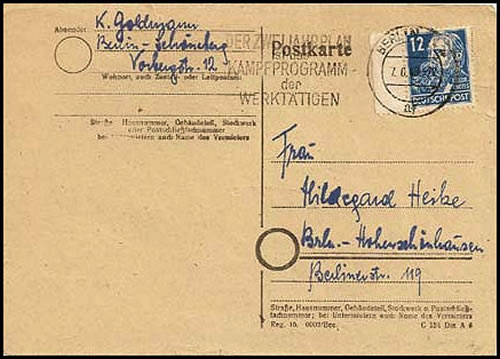 Absender:
K. Goldmann
Berlin-Schöneberg
Vorbergstr. 12
Wohnort, auch Zustell- oder Leitpostamt
Straße, Hausnummer, Gebäudeteil, Stockwerk
oder Postschließfachnummer
bei Untermietern auch Name des Vermieters
Postkarte
DER ZWEIJAHRPLAN
IST DAS
KAMPFPROGRAMM
der
WERKTÄTIGEN
BERLIN
12
DEUTSCHE POST
Frau
Hildegard Heike
Brln.-Hohenschönhausen
Berlinerstr. 119
Straße, Hausnummer, Gebäudeteil, Stockwerk o. Postschließ-
fachnummer; bei Untermietern auch Name des Vermieters
C 154 Din A 6